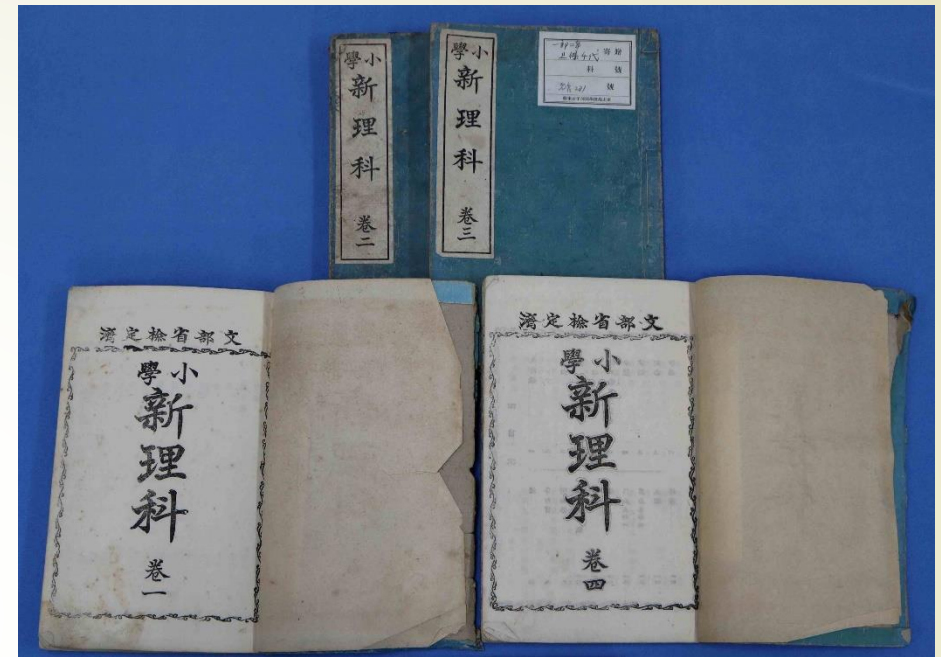 小學
新理科
卷二
小學
新理科
卷三
科 號
號
文部省檢定濟
小學
新理科
卷一
文部省檢定濟
小學
新理科
卷四